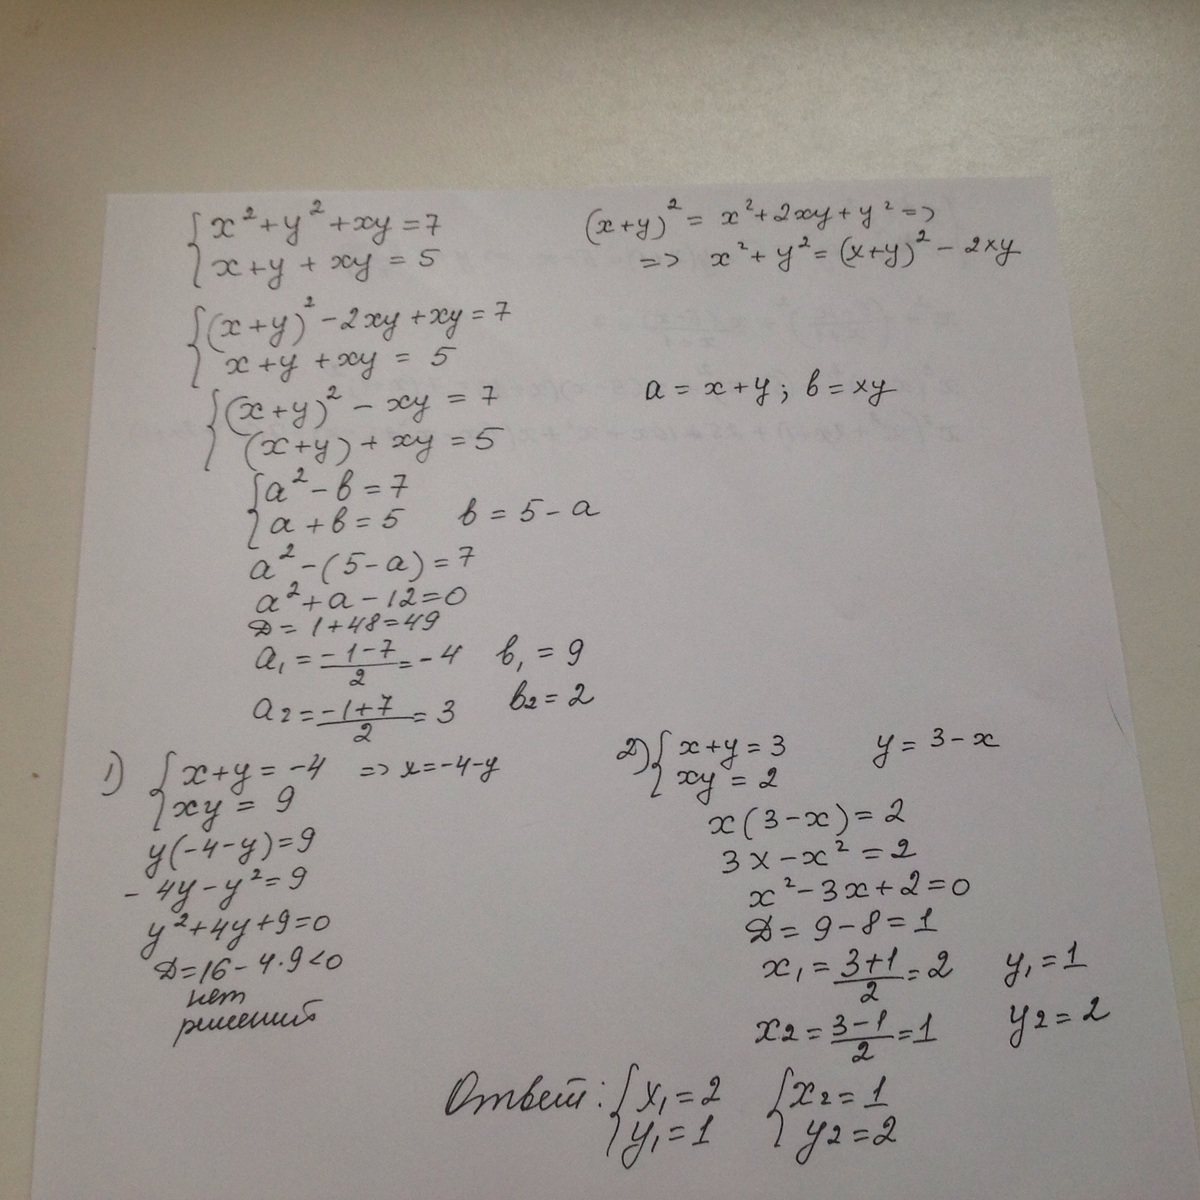 { x² + y² + xy = 7
{ x + y + xy = 5
(x+y)² = x² + 2xy + y² =>
=> x² + y² = (x+y)² - 2xy
{ (x+y)² - 2xy + xy = 7
{ x + y + xy = 5
{ (x+y)² - xy = 7
{ (x+y) + xy = 5
a = x + y ; b = xy
{ a² - b = 7
{ a + b = 5 b = 5 - a
a² - (5 - a) = 7
a² + a - 12 = 0
D = 1 + 48 = 49
a₁ = (-1-7)/2 = -4 b₁ = 9
a₂ = (-1+7)/2 = 3 b₂ = 2
1) { x + y = -4 => x = -4-y
{ xy = 9
y(-4-y) = 9
- 4y - y² = 9
y² + 4y + 9 = 0
D = 16 - 4·9 < 0
нет
решений
2) { x + y = 3 y = 3 - x
{ xy = 2
x(3-x) = 2
3x - x² = 2
x² - 3x + 2 = 0
D = 9 - 8 = 1
x₁ = (3+1)/2 = 2 y₁ = 1
x₂ = (3-1)/2 = 1 y₂ = 2
Ответ: { x₁ = 2 { x₂ = 1
{ y₁ = 1 { y₂ = 2